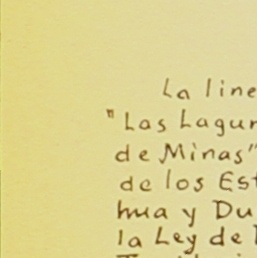 La line
"Las Lagun
de Minas"
de los Est
hua y Du
la Ley de